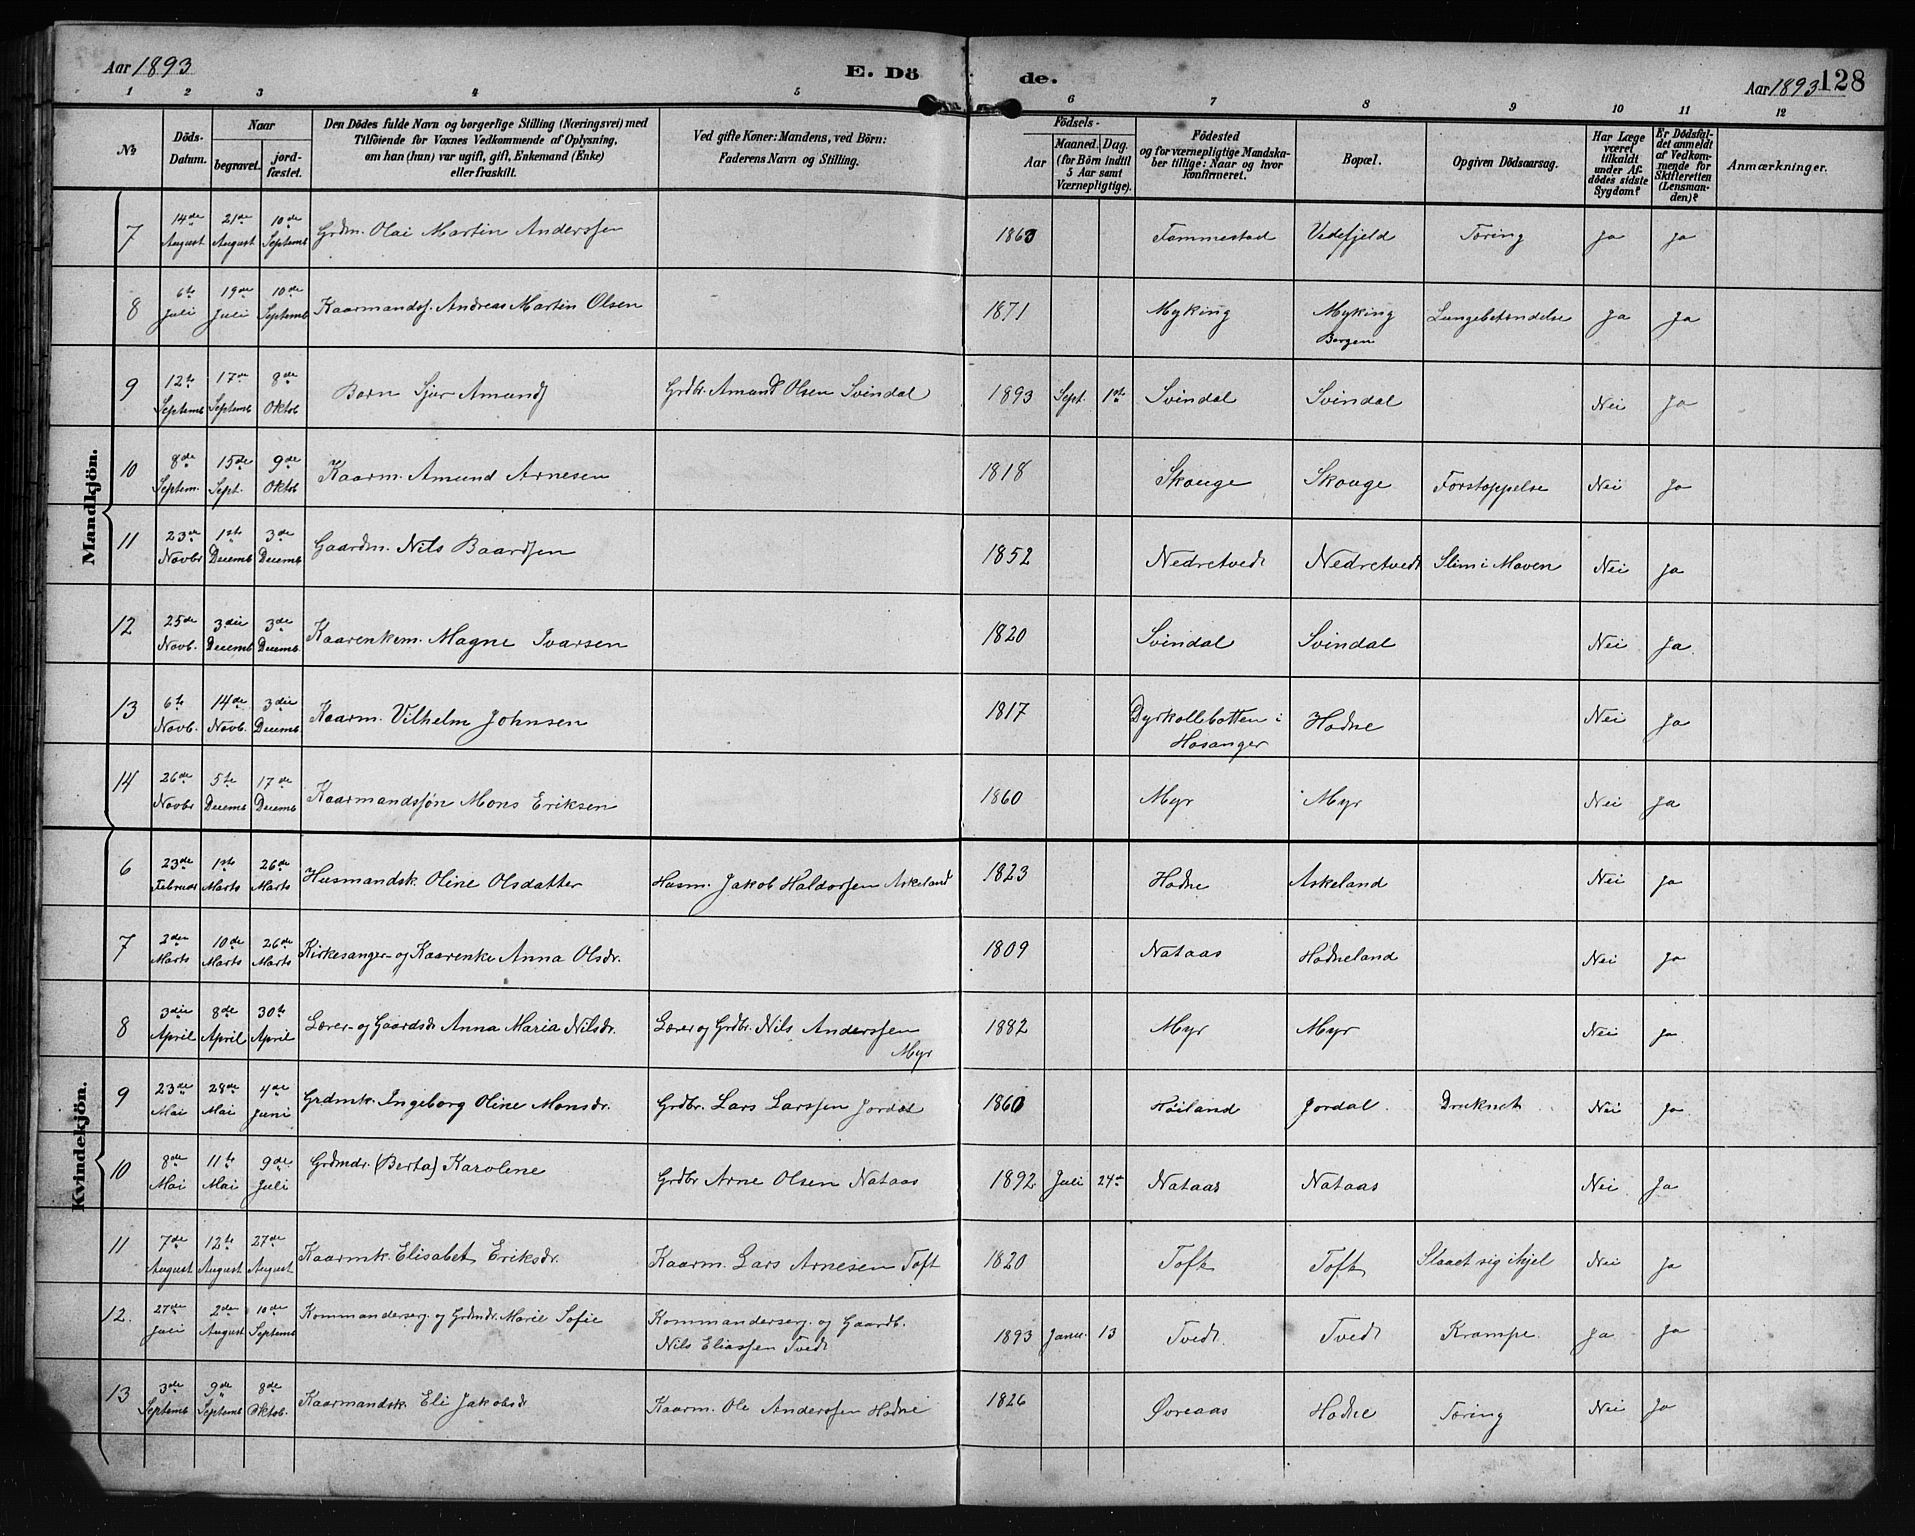 Aar 1893 E. Dö de. Aar 1893 128
1 2 3 4 5 6 7 8 9 10 11 12
№ Döds-Datum. Naar begravet. jordfæstet. Den Dödes fulde Navn og borgerlige Stilling (Næringsvei) med Tilföiende for Voxnes Vedkommende af Oplysning, om han (hun) var ugift, gift, Enkemand (Enke) eller fraskilt. Ved gifte Koner: Mandens, ved Börn: Faderens Navn og Stilling. Födsels- Aar Maaned. Dag. (for Börn indtil 5 Aar samt Værnepligtige). Födested og for værnepligtige Mandskaber tillige: Naar og hvor konfirmeret. Bopæl. Opgiven Dödsaarsag. Har Læge været tilkaldt under Afdödes sidste Sygdom? Er Dödsfaldet anmeldt af Vedkommende for Skifteretten (Lensmanden)? Anmærkninger.
Mandkjön.
7 14de August 21de August 10de Septemb Grdm. Olai Martin Anderssen 1863 Tammestad Vedefjeld Tæring Ja Ja
8 6te Juli 19de Juli 10de Septemb Kaarmandss. Andreas Martin Olsen 1871 Myking Myking Bergen Lungebetændelse Ja Ja
9 12te Septemb 17de Septemb 8de Oktob Barn Sjur Amunds Grdbr. Amund Olsen Svindal 1893 Sept. 1ste Svindal Svindal Nei Ja
10 8de Septem. 15de Sept. 9de Oktob Kaarm. Amund Arnesen 1818 Skouge Skouge Forstoppelse Nei Ja
11 23de Novbr 1ste Decemb 3de Decemb Gaardm. Nils Baardsen 1852 Nedretvedt Nedretvedt Slim i Maven Nei Ja
12 25de Novb. 3die Decemb 3de Decemb Kaarenkem. Magne Ivarsen 1820 Svindal Svindal Nei Ja.
13 6te Novb. 14de Novb. 3die Decemb Kaarm. Vilhelm Johnsen 1817 Dyrkollebotten i Hosanger Hodne Nei Ja
14 26de Novbr 5te Decemb 17de Decemb Kaarmandssøn Mons Eriksen 1860 Myr Myr Nei Ja
Kvindekjön.
6 23de Februar 1ste Marts 26de Marts Husmandsk. Oline Olsdatter Husm. Jakob Haldorsen Askeland 1823 Hodne Askeland Nei Ja
7 2den Marts 10de Marts 26de Marts Kirkesanger- og Kaarenke Anna Olsdr. 1809 Nataas Hodneland Nei Ja
8 3die April 8de April 30te April Lærer- og Gaardsdr Anna Maria Nilsdr. Lærer og Grdbr. Nils Anderssen Myr 1882 Myr Myr Nei Ja
9 23de Mai 28de Mai 4de Juni Grdmk. Ingeborg Oline Monsdr. Grdbr. Lars Larssen Jordal 1860 Høiland Jordal. Druknet Nei Ja
10 8de Mai 11te Mai 9de Juli Grdmdr. (Berta) Karoline Grdbr Arne Olsen Nataas 1892 Juli 24de Nataas Nataas Nei Ja
11 7de August 12te August 27de August Kaarmk. Elisabet Eriksdr. Kaarm. Lars Arnesen Toft 1820 Toft Toft Slaaet sig ihjel Nei Ja
12. 27de Juli 2de August 10de Septemb Kommanderserg. og Grdmdr. Marie Sofie Kommanderserg. og Gaardb. Nils Eliassen Tvedt 1893 Janu. 13 Tvedt Tvedt Krampe Ja Ja
13 3de Septemb 9de Septemb 8de Oktob. Kaarmandsk. Eli Jakobsdr Kaarm. Ole Anderssen Hodne 1826 Øvreaas Hodne Tæring Nei Ja